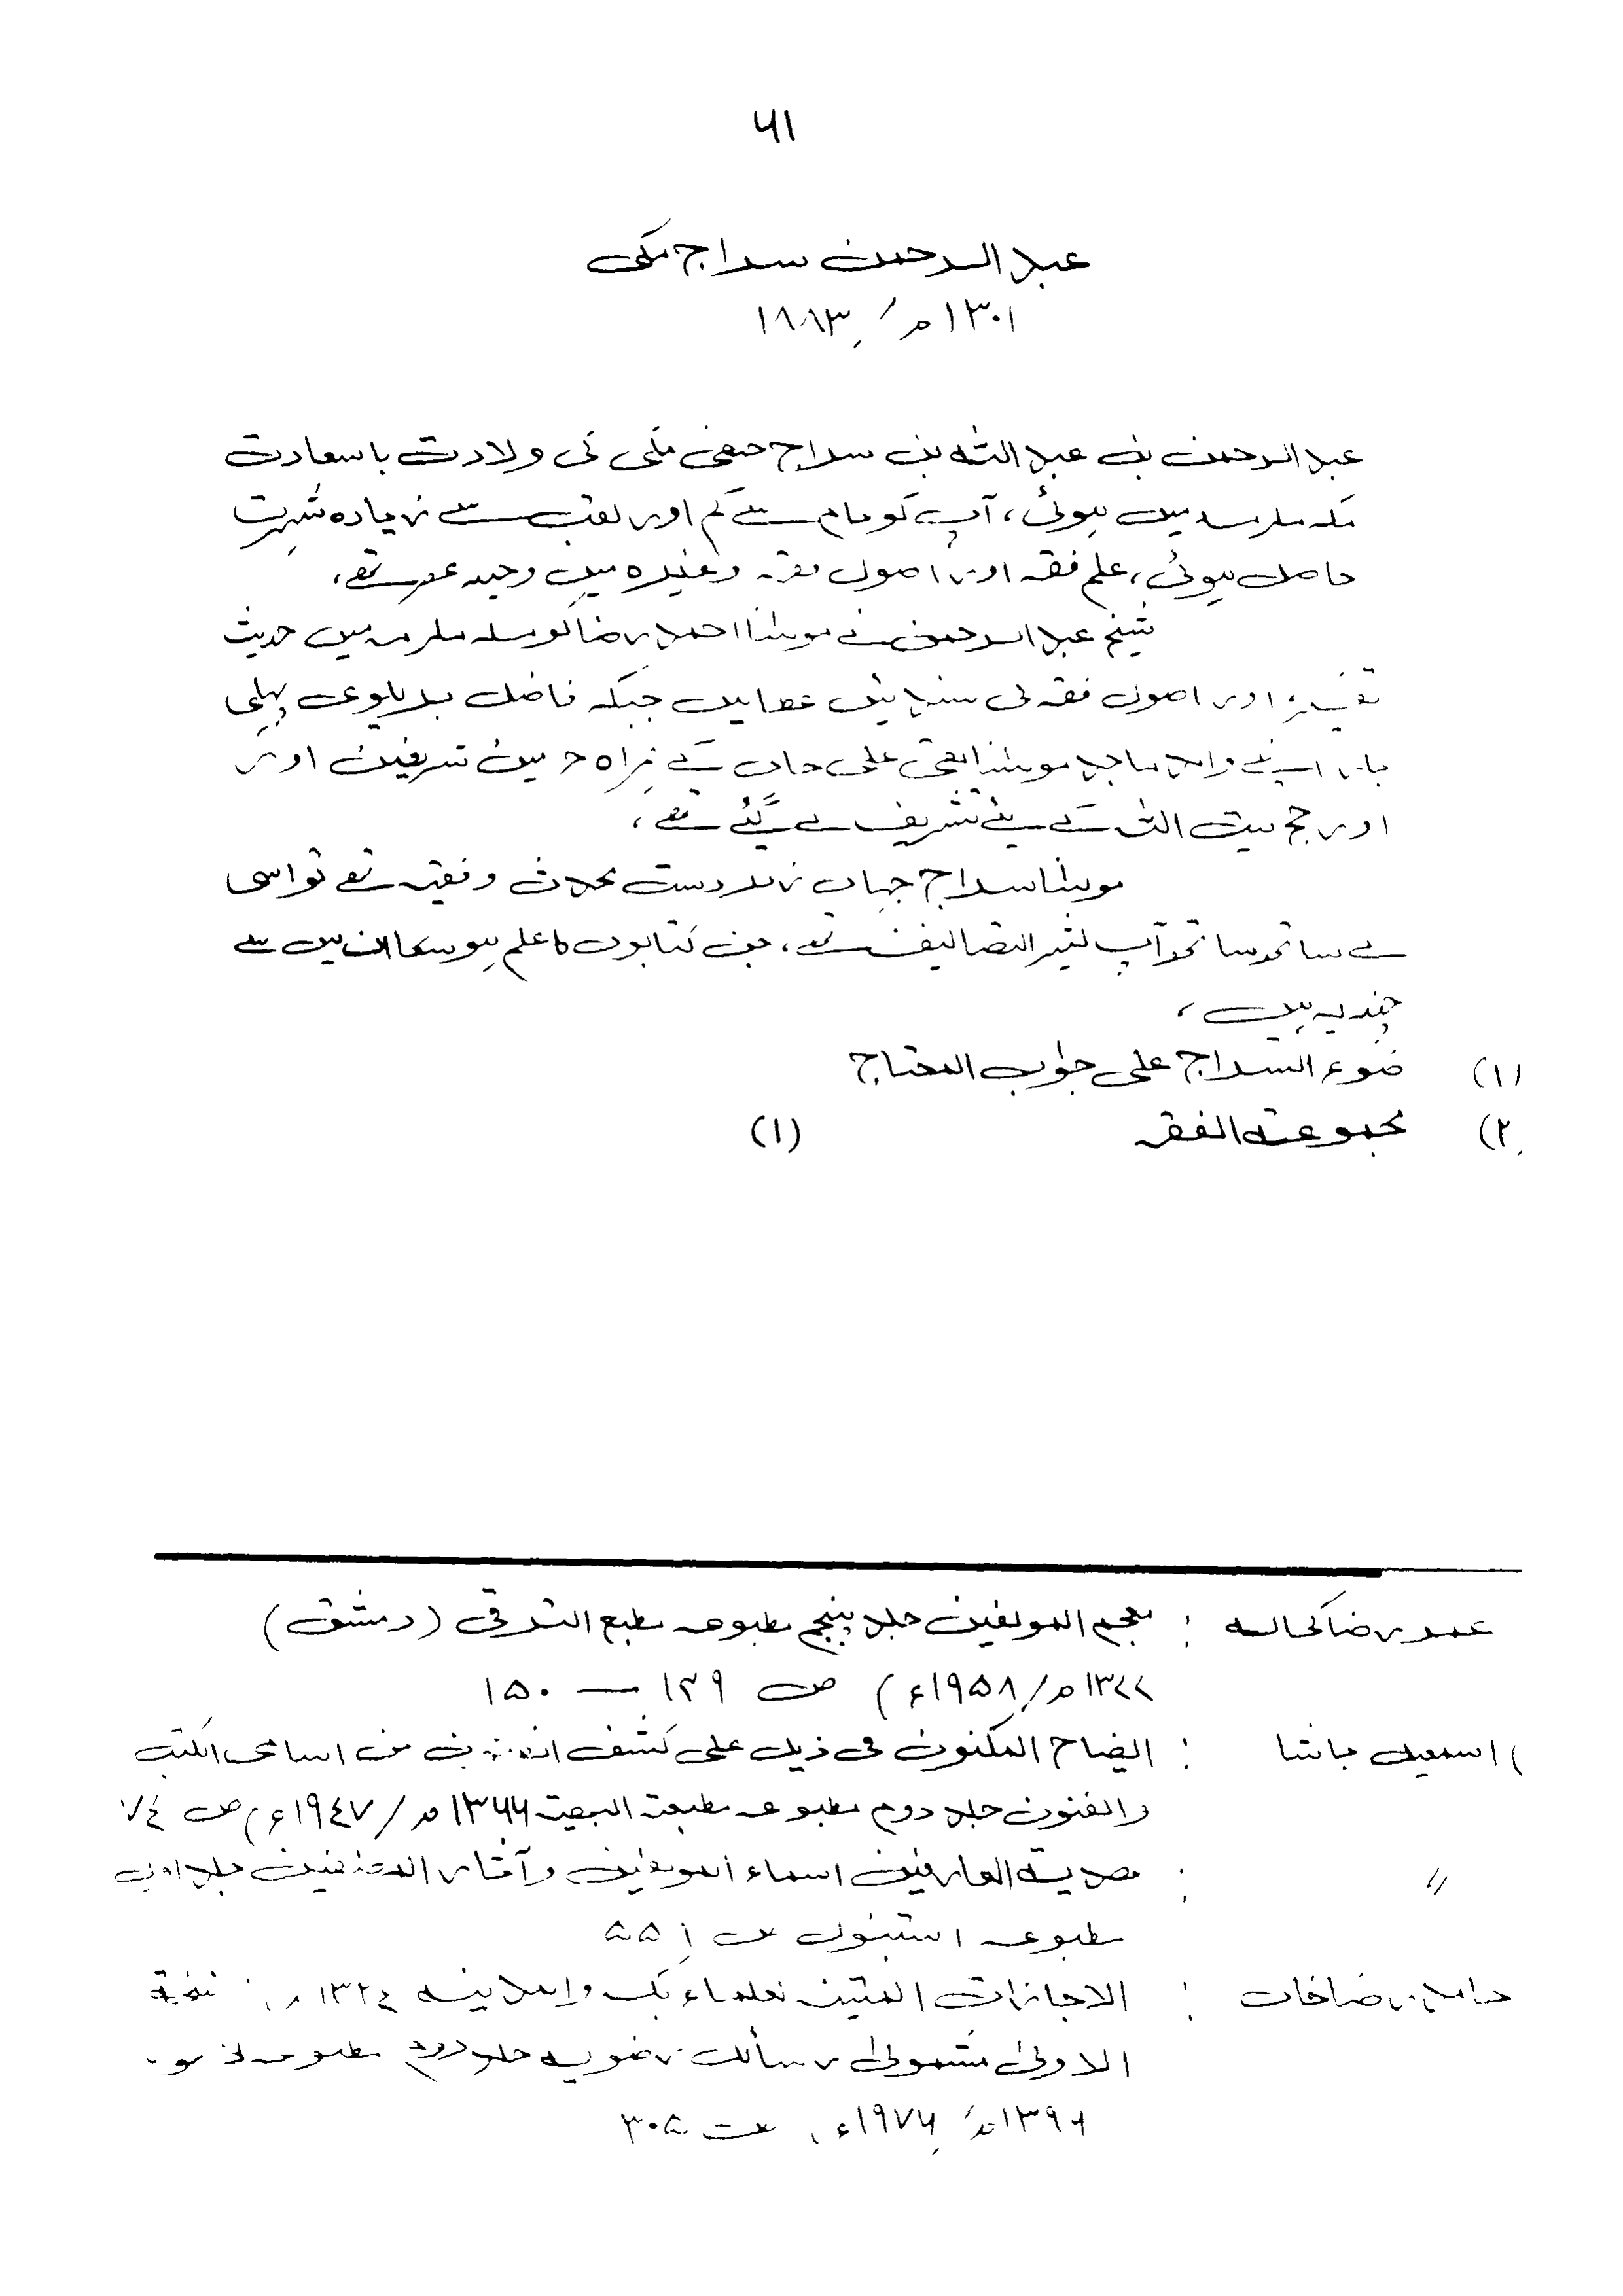 ۶۱
عبد الرحمن سراج مکی
۱۳۰۱ھ / ۱۸۸۳ء
عبد الرحمن بن عبد اللہ بن سراج حنفی مکی کی ولادت باسعادت
مکہ مکرمہ میں ہوئی، آپ کو نام سے کم اور لقب سے زیادہ شہرت
حاصل ہوئی، علم فقہ اور اصول فقہ وغیرہ میں وحید عصر تھے،
شیخ عبد الرحمن نے مولٰنا احمد رضا کو مکہ مکرمہ میں حدیث
تفسیر اور اصول فقہ کی سندیں عطا کیں جبکہ فاضل بریلوی پہلی
بار اپنے والد ماجد مولٰنا نقی علی خاں کے ہمراہ حرمین شریفین اور
اور حج بیت اللہ کے لیئے تشریف لے گئے تھے،
مولٰنا سراج جہاں زبردست محدث و فقیہ تھے تو اسی
کے ساتھ ساتھ آپ کثیر التصانیف تھے، جن کتابوں کا علم ہو سکا ان میں سے
چند یہ ہیں،
(۱) ضوء السراج علی جواب المحتاج
(۲) مجموعۃ الفقہ (۱)
عمر رضا کحالہ : معجم المولفین جلد پنجم مطبوعہ مطبع الترقی (دمشق)
۱۳۷۷ھ/۱۹۵۸ء) ص ۱۴۹ — ۱۵۰
) اسمعیل باشا : ایضاح المکنون فی ذیل علی کشف الظنون من اسامی الکتب
والفنون جلد دوم مطبوعہ مطبعۃ البھیۃ ۱۳۶۶ھ/۱۹۴۷ء) ص ۷۴
〃 : ھدیۃ العارفین اسماء المولفین وآثار المصنفین جلد اول
مطبوعہ استنبول ص ۵۵
حامد رضا خان : الاجازات المتینہ لعلماء بکہ والمدینہ ۱۳۲۴ھ نسخۃ
الاولیٰ مشمولۂ رسائل رضویہ جلد دوم مطبوعہ
۱۳۹۶ھ/ ۱۹۷۶ء، ص ۳۰۵